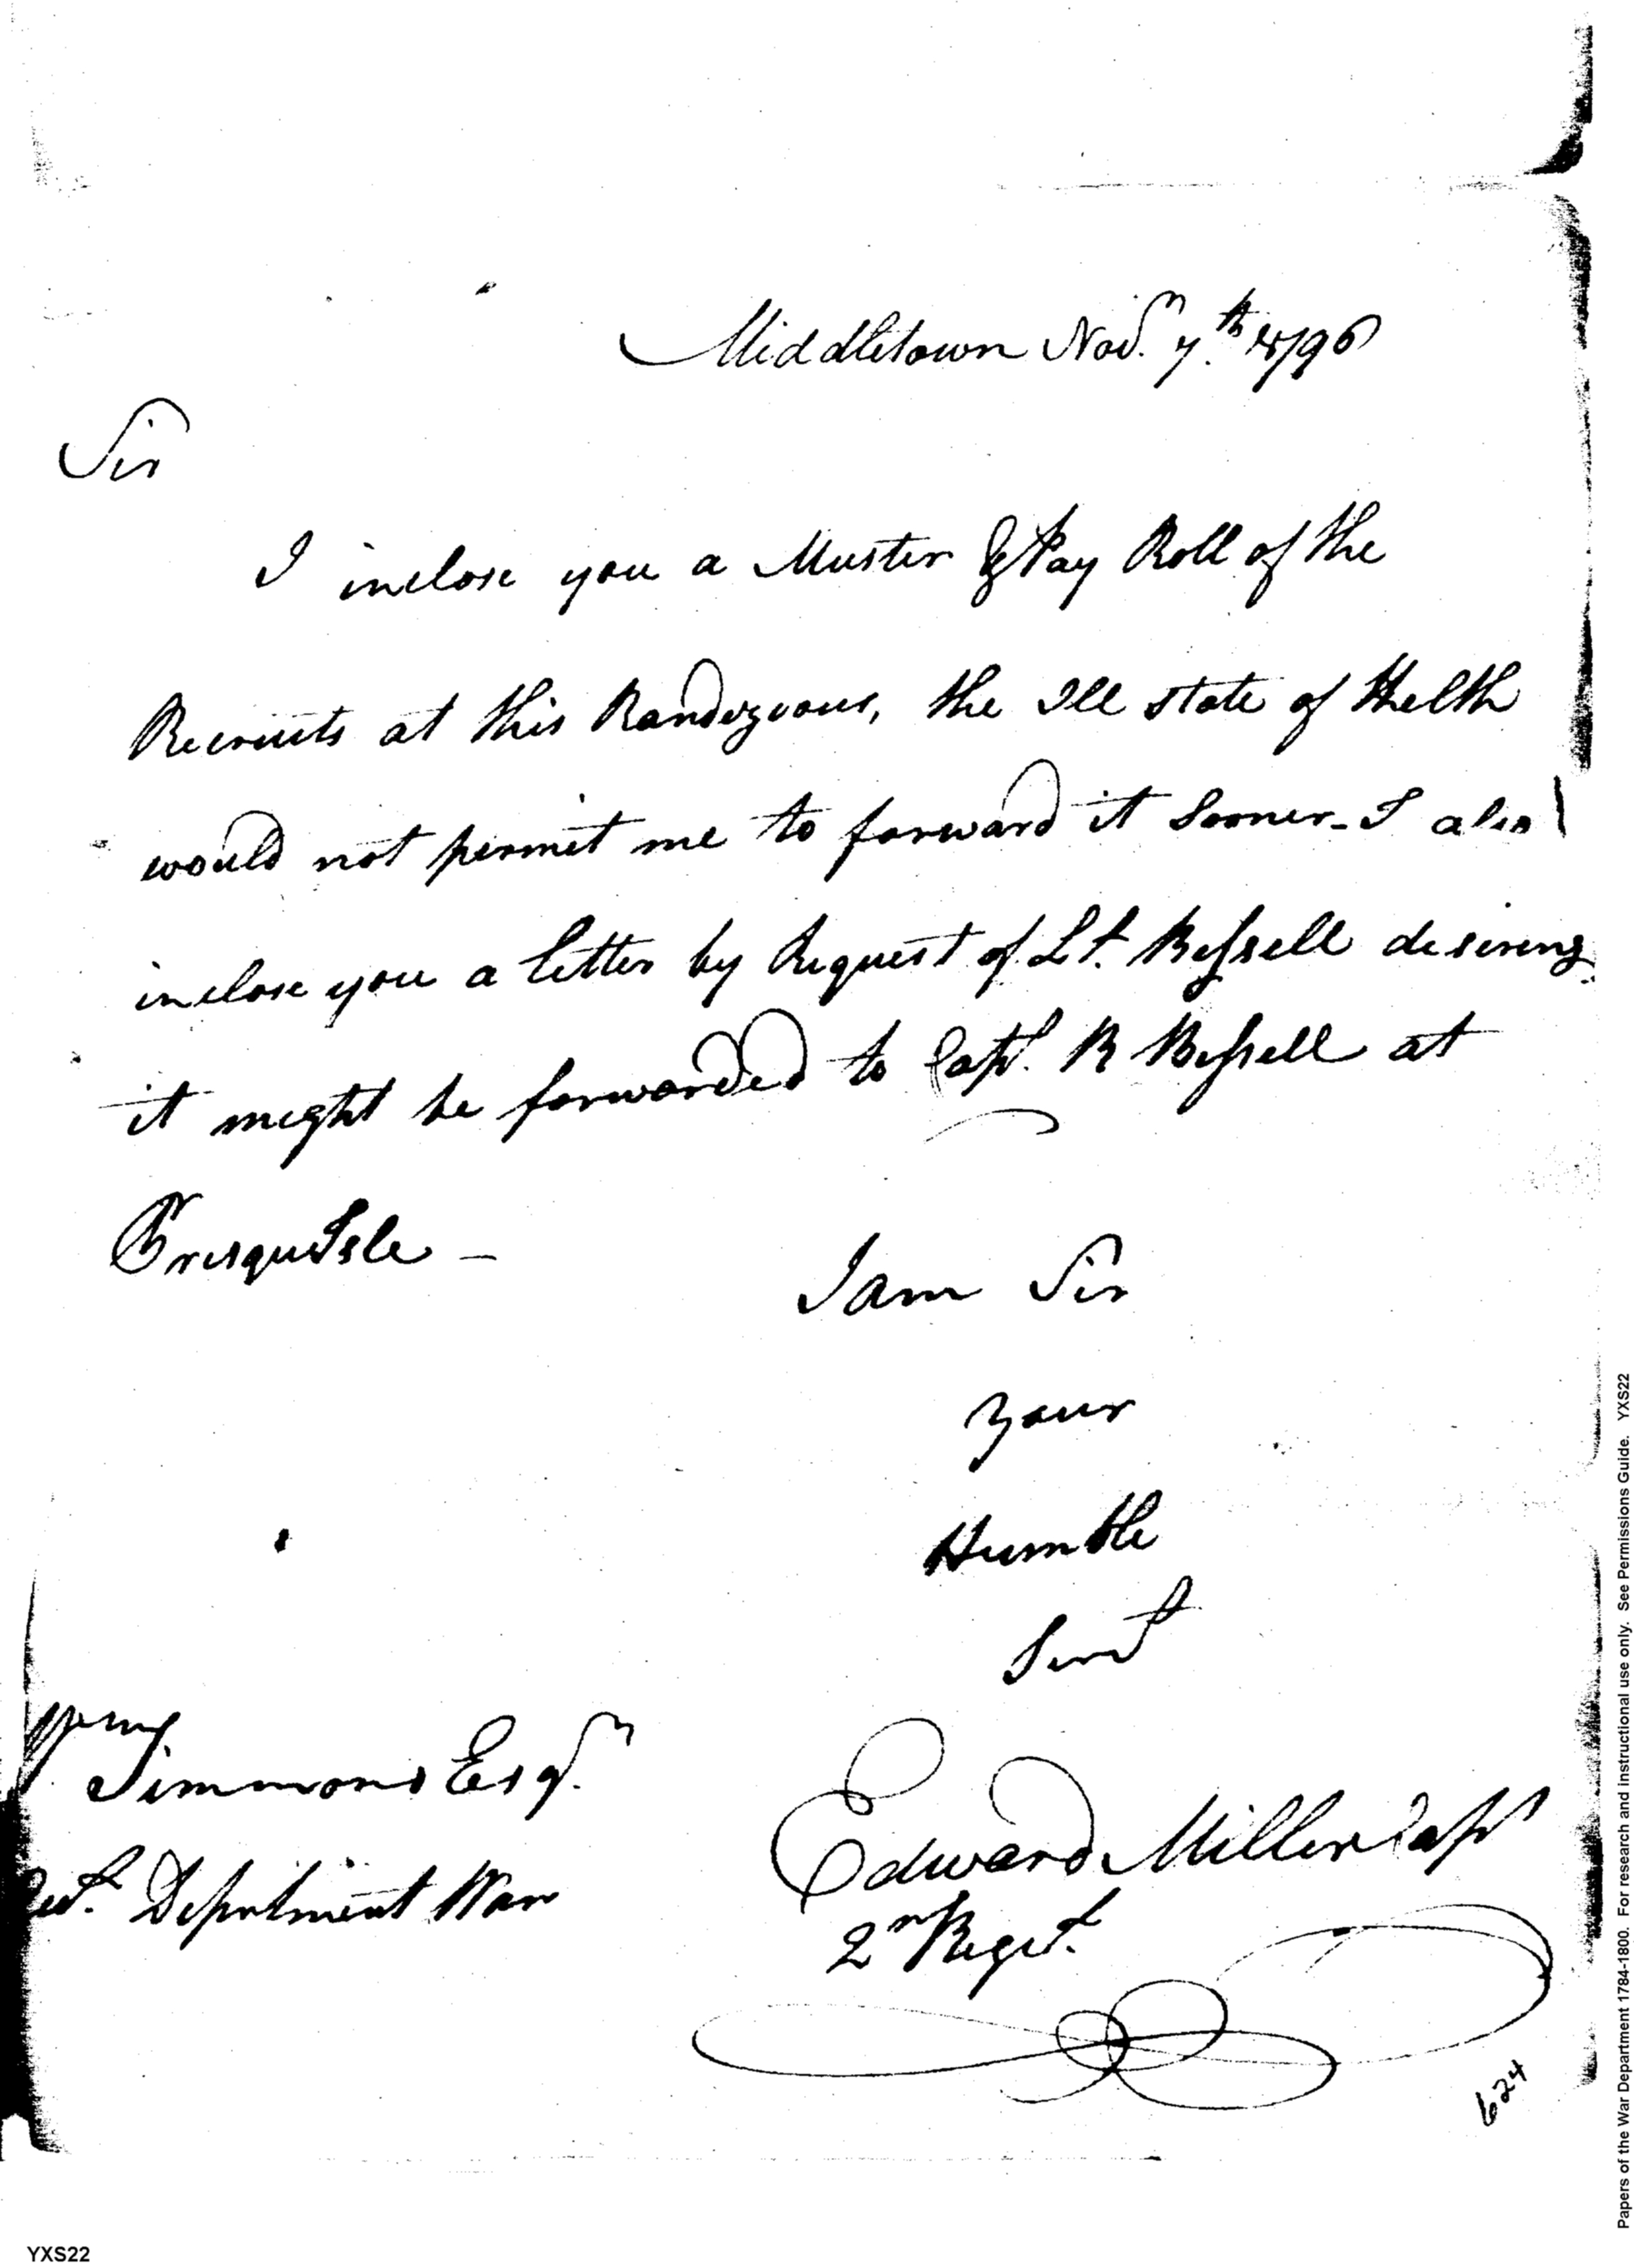 Middletown Novr. 7.th 1796
Sir
I inclose you a Muster & Pay Roll of the
Recruits at this Randezvous, the Ill state of Helth
would not permit me to forward it Sooner - I also
inclose you a letter by Request of Lt. Bissell desireing
it might be forwarded to Capt. R Bissell at
Presqu Isle -
I am Sir
your
Humble
Servt
Wm
Simmons Esqr.
Acct. Depertment War
Edward Miller Capt
2n Regit.
624
Papers of the War Department 1784-1800. For research and instructional use only. See Permissions Guide. YXS22
YXS22